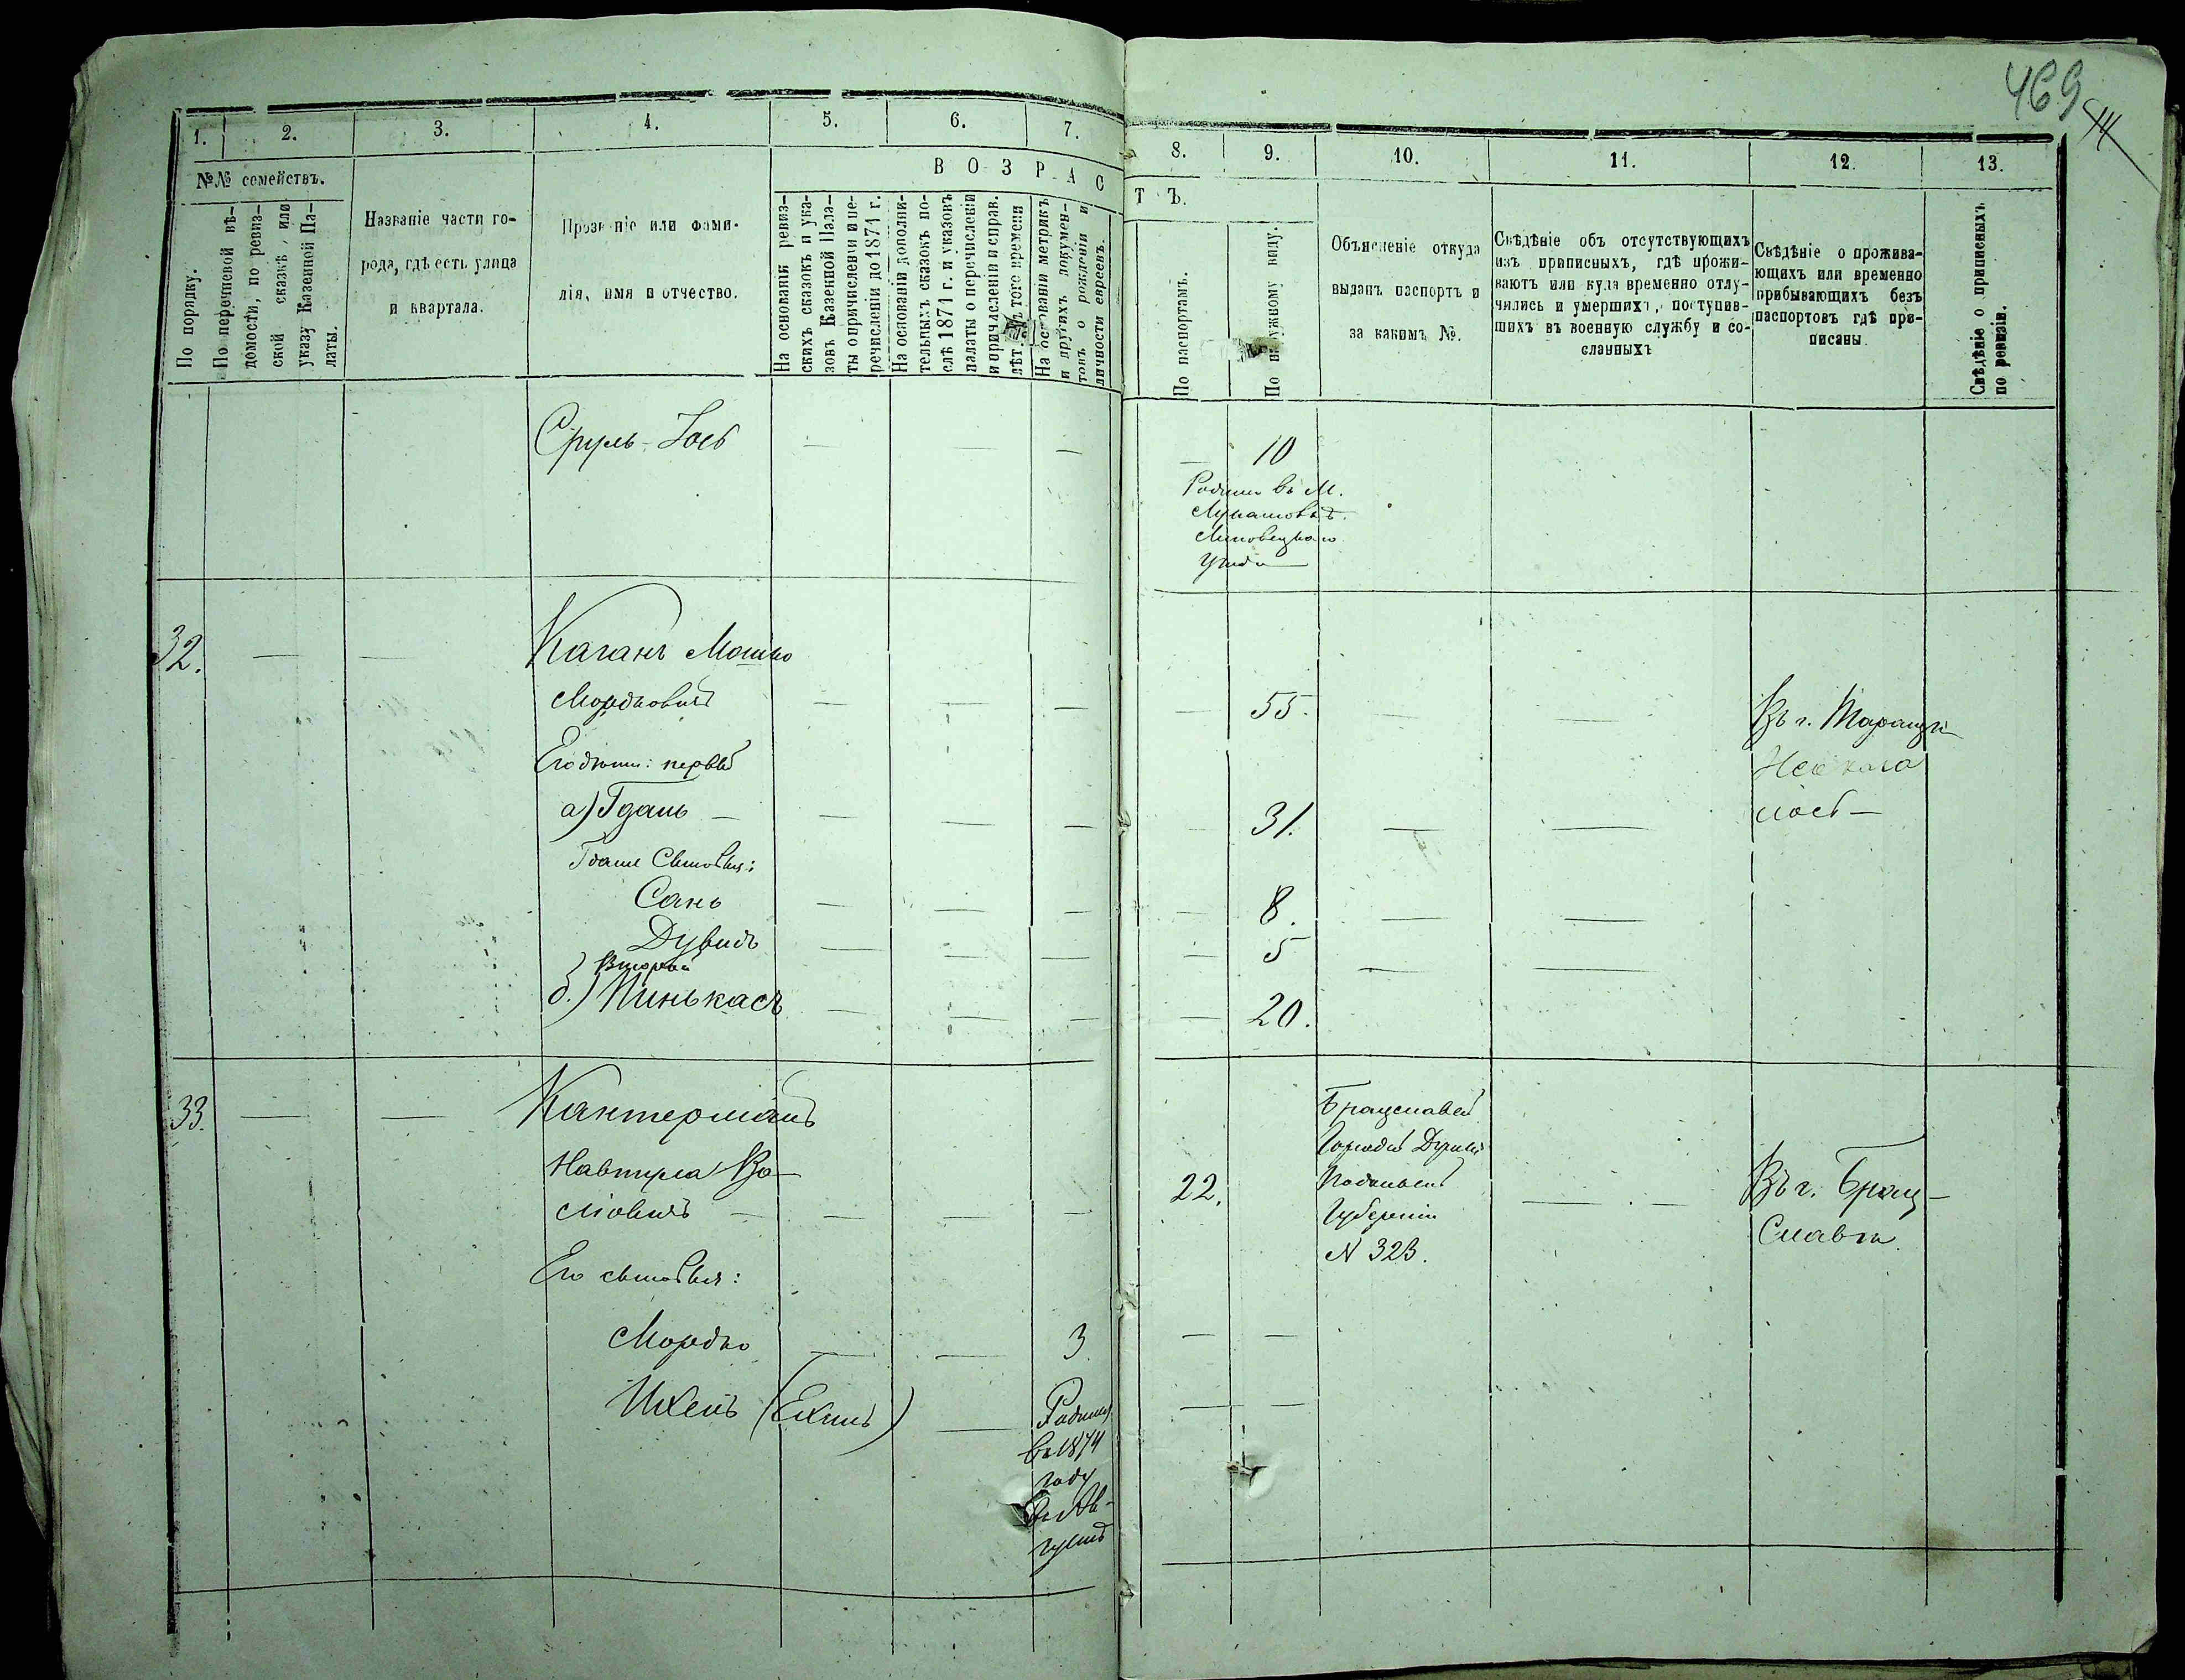 469
14
1.
2.
3.
4.
5.
6.
7.
8.
9.
10.
11.
12.
13.
№№ семействъ.
По порядку.
По перечневой вѣ-
домости, по ревиз-
ской сказкѣ, или
указу Казенной Па-
латы.
Названіе части го-
рода, гдѣ есть улица
и квартала.
Прозваніе или фами-
лія, имя и отчество.
ВОЗРАСТЪ.
На основаніи ревиз-
скихъ сказокъ и ука-
зовъ Казенной Пала-
ты о причисленіи и пе-
речисленіи до 1871 г.
На основаніи дополни-
тельныхъ сказокъ по-
слѣ 1871 г. и указовъ
палаты о перечисленіи
и причисленіи и справ.
лѣт того времени
На основаніи метрикъ
и другихъ докумен-
товъ о рожденіи и
личности евреевъ.
По паспортамъ.
По наружному виду.
Объясненіе откуда
выданъ паспортъ и
за какимъ №.
Свѣдѣніе объ отсутствующихъ
изъ приписныхъ, гдѣ прожи-
ваютъ или куда временно отлу-
чились и умершихъ, поступив-
шихъ въ военную службу и со-
сланныхъ
Свѣдѣніе о прожива-
ющихъ или временно
прибывающихъ безъ
паспортовъ гдѣ при-
писаны.
Свѣдѣніе о приписныхъ
по ревизіи.
Сруль-Іось — — — — 10
въ М.
Липовецкаго
32. — — Каганъ Мошко
Мордковичъ — — — — 55. — — Въ г. Таращи
первый
а) Гдаль — — — — — 31. — —
Гдаля Сыновья:
Сань — — — — 8. — —
Дувидъ — — — — 5 — —
Второй
б.) Пинькасъ — — — — 20.
33. — — Кантерманъ
Навтула Во-
ловичъ — — — — 22.
Брацлавск
Городск Думы
Подольск
Губерніи
№ 323.
— — Въ г. Брац-
лавѣ.
Его сыновья:
Мордко — — 3 — —
Ихель (Ехиль) — Родился — —
въ 1874
году
Ав-
густѣ